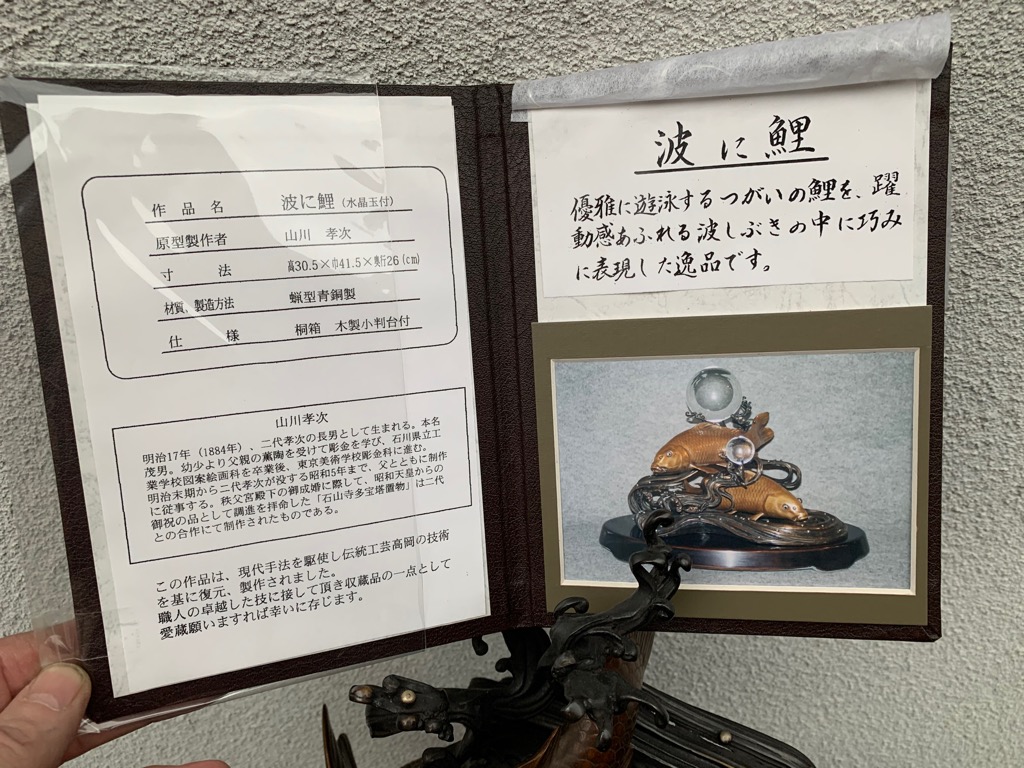 作品名 波に鯉（水晶玉付）
原型製作者 山川 孝次
寸法 高30.5×巾41.5×奥行26(cm)
材質、製造方法 蝋型青銅製
仕様 桐箱 木製小判台付
山川孝次
明治17年（1884年）、二代孝次の長男として生まれる。本名
茂男。幼少より父親の薫陶を受けて彫金を学び、石川県立工
業学校図案絵画科を卒業後、東京美術学校彫金科に進む。
明治末期から二代孝次が没する昭和5年まで、父とともに制作
に従事する。秩父宮殿下の御成婚に際して、昭和天皇からの
御祝の品として調進を拝命した「石山寺多宝塔置物」は二代
との合作にて制作されたものである。
この作品は、現代手法を駆使し伝統工芸高岡の技術
を基に復元、製作されました。
職人の卓越した技に接して頂き収蔵品の一点として
愛蔵願いますれば幸いに存じます。
波に鯉
優雅に遊泳するつがいの鯉を、躍
動感あふれる波しぶきの中に巧み
に表現した逸品です。